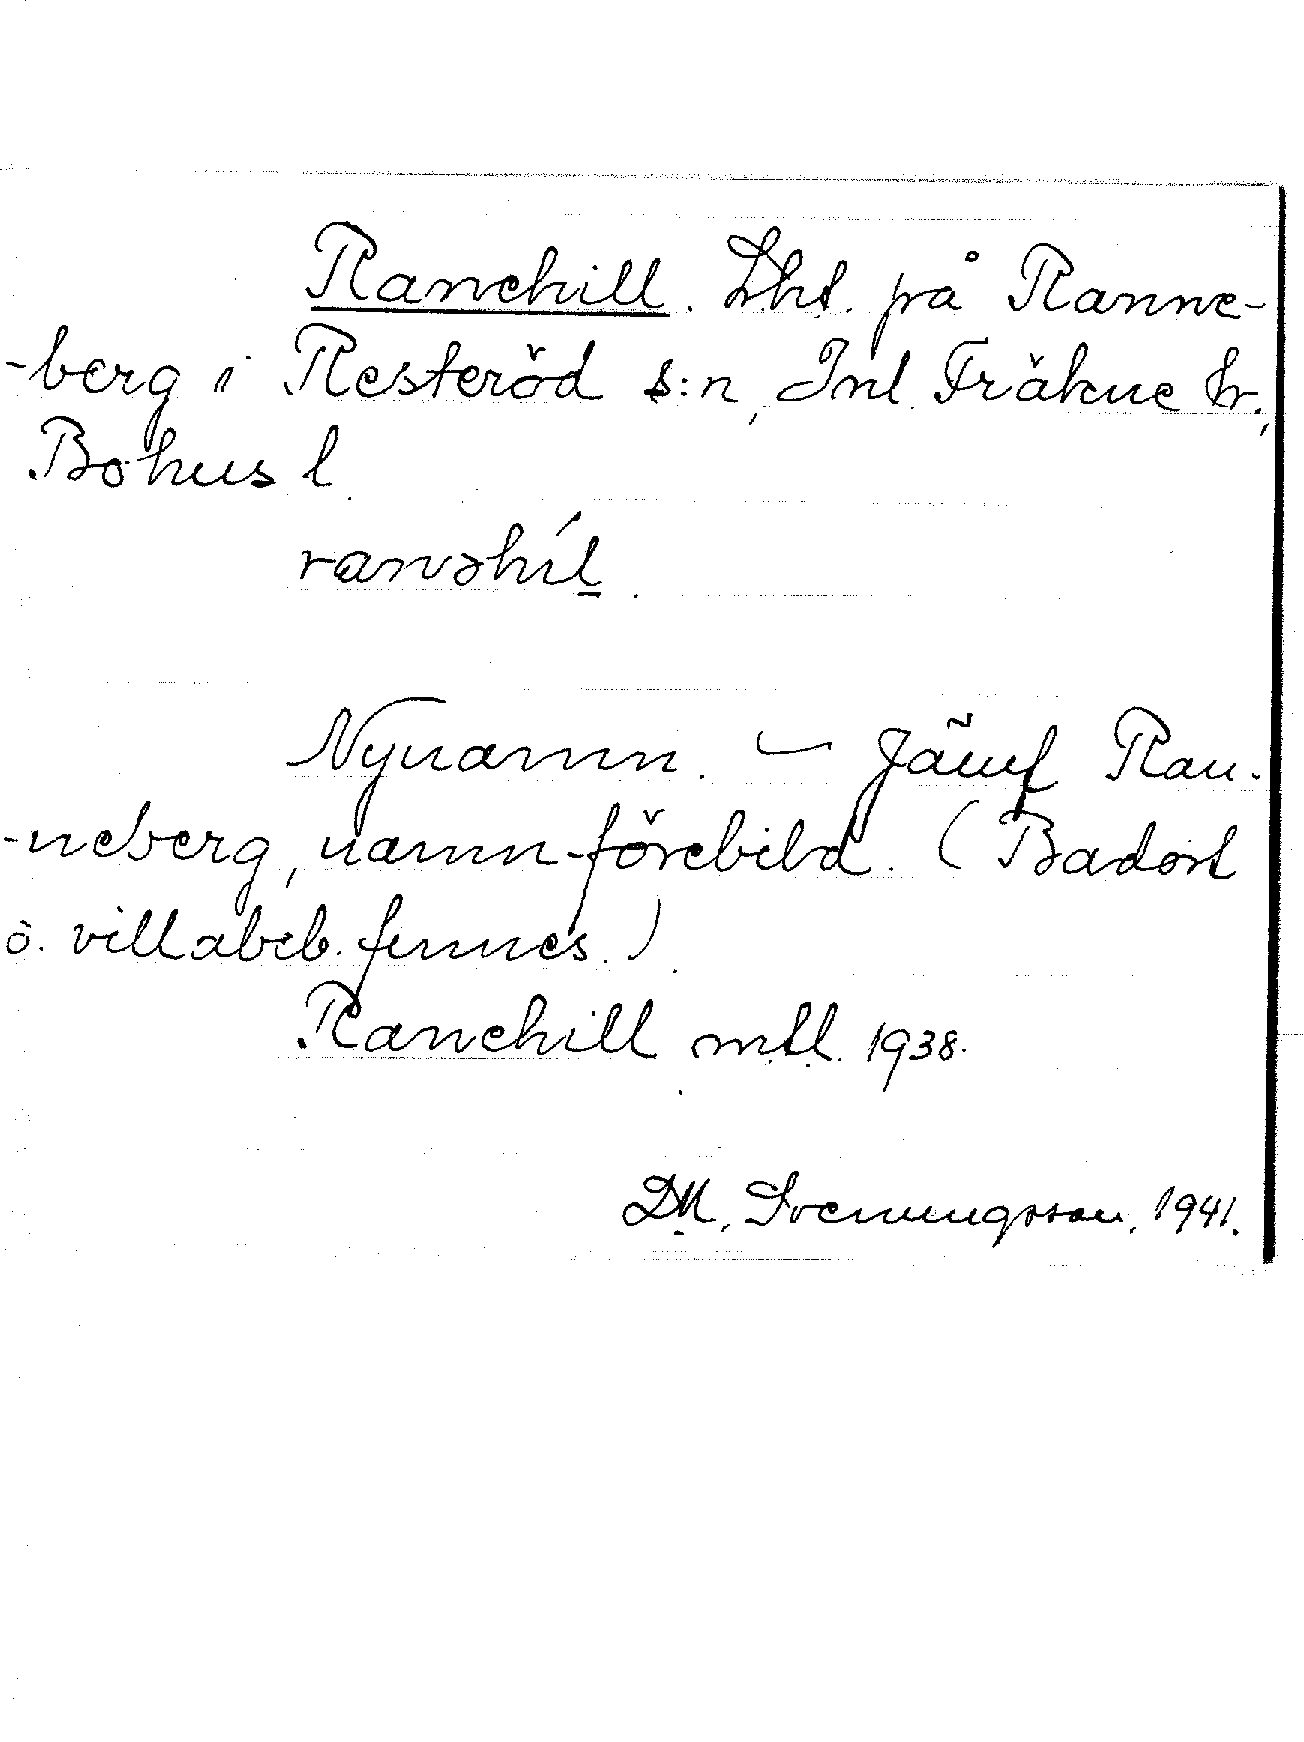 Ranehill. Lht. på Ranne-
-berg i Resteröd s:n, Inl. Fräkne hr.,
Bohus l.
ranəhíl.
Nynamn. – Jämf Ran-
-neberg, namnförebild. (Badort
o. villabeb. finnes.)
Ranehill mtl. 1938.
D.M. Svenungsson, 1941.